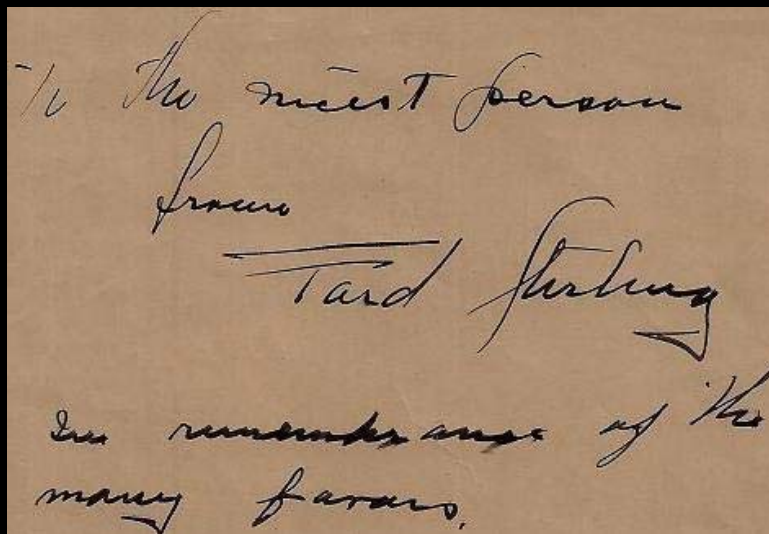 To the nicest person
from
Ford Sterling
In remembrance of the
many favors.